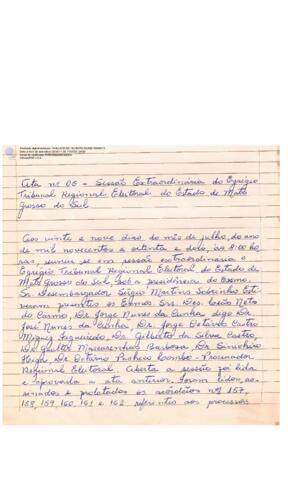 Ata nº 06 - Sessão Extraordinária do Egrégio
Tribunal Regional Eleitoral do Estado de Mato
Grosso do Sul
Aos vinte e nove dias do mês de julho, do ano
de mil novecentos e oitenta e dois, às 8:00 ho
ras, reuniu-se em sessão extraordinária o
Egrégio Tribunal Regional Eleitoral do Estado de
Mato Grosso do Sul, sob a presidência do Exmo.
Sr. Desembargador Sérgio Martins Sobrinho. Esti
veram presentes os Exmos Srs. Des. Leão Neto
do Carmo, Dr. Jorge Nunes da Cunha digo Dr.
José Nunes da Cunha, Dr. Jorge Octávio Castro
Miguez Figueiredo, Dr. Gilberto da Silva Castro,
Dr. Mascarenhas Barbosa, Dr.
Dr. Octavio Pacheco Lombo - Procurador
Regional Eleitoral. Aberta a sessão foi lida
e aprovada a ata anterior. Foram lidos, as-
sinados e prolatados os acórdãos nº 157,
158, 159, 160, 161 e 162 referentes aos processos